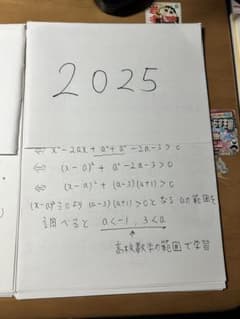 2025
⇔ x² - 2ax + a² + a² - 2a - 3 > 0
⇔ (x - a)² + a² - 2a - 3 > 0
⇔ (x - a)² + (a-3)(a+1) > 0
(x-a)² ≧ 0 より (a-3)(a+1) > 0 となる aの範囲を
調べると a < -1, 3 < a
高校数学の範囲で学習